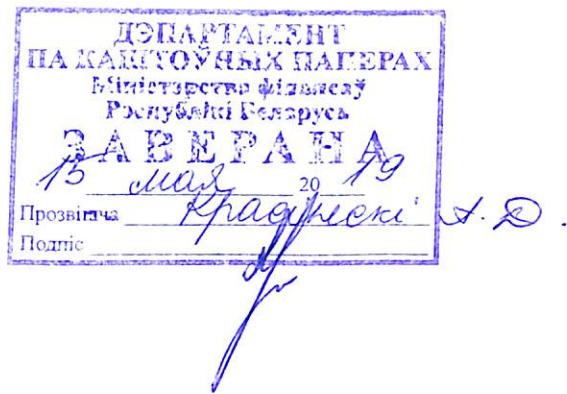 ДЭПАРТАМЕНТ
ПА КАШТОЎНЫХ ПАПЕРАХ
Міністэрства фінансаў
Рэспублікі Беларусь
ЗАВЕРАНА
15 мая 20 19
Прозвішча А. Д.
Подпіс